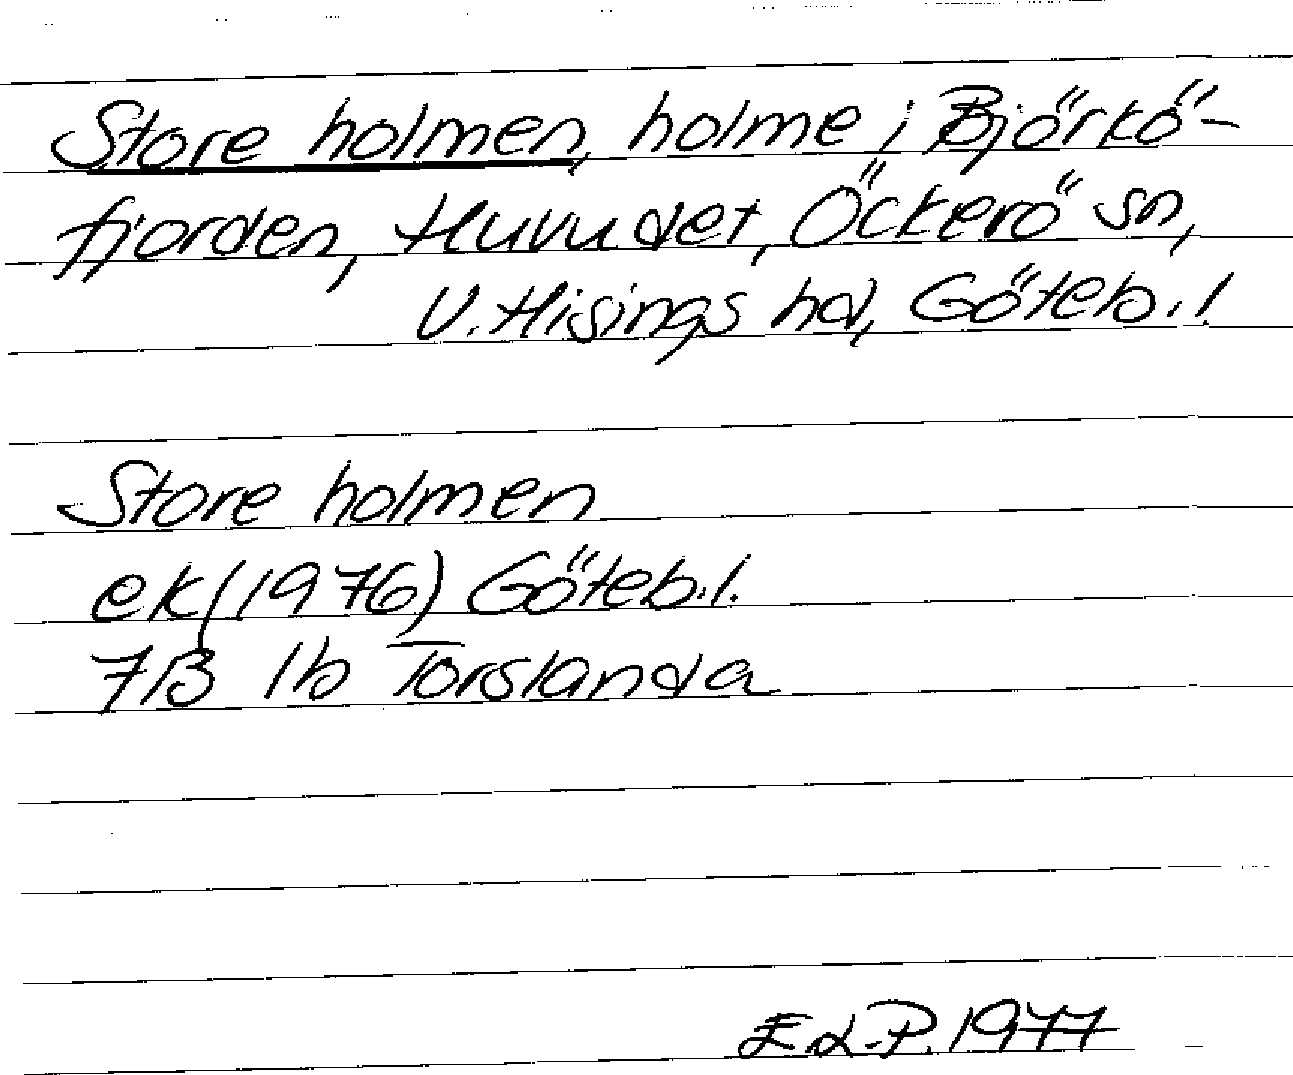 Store holmen, holme i Björkö-
fjorden, Huvudet, Öckerö sn,
V. Hisings hd, Göteb. l.
Store holmen
ek (1976) Göteb. l.
7B 1b Torslanda
E.L-P. 1977